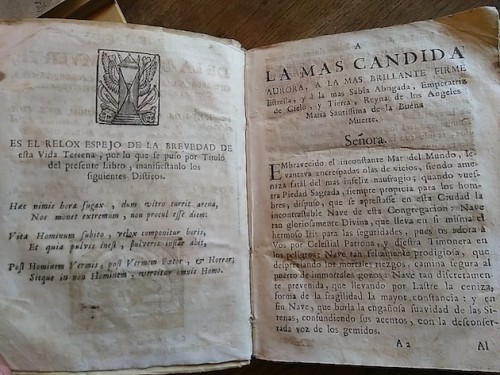 ES EL RELOX ESPEJO DE LA BREVEDAD DE
esta Vida Terrena; por lo que se puso por Titulo
del presente Libro, manifiestanlo los
siguientes Disticos.
Hæc nimis hora fugax, dum vitro currit arena,
Nos monet extremum, non procul esse diem:
Vita Hominum subito, velox componitur horis,
Et quia pulvis inest, pulveris instar abit,
Post Hominem Vermis, post Vermem Fætor, & Horror;
Sicque in non Hominem, vertitur omnis Homo.
A
LA MAS CANDIDA
AURORA, A LA MAS BRILLANTE FIRME
Estrella, y à la mas Sabia Abogada, Emperatriz
de Cielo, y Tierra, Reyna de los Angeles
Maria Santissima de la Buena
Muerte.
Señora.
EMbravecido el inconstante Mar del Mundo, le-
vantava encrespadas olas de vicios, siendo ame-
niza fatal del mas infeliz naufragio; quando vues-
tra Piedad Sagrada, siempre propicia para los hom-
bres, dispuso, que se aprestasse en esta Ciudad la
incontrastable Nave de esta Congregacion; Nave
tan gloriosamente Divina, que lleva en si misma el
hermoso Iris para las seguridades, pues os adora à
Vos por Celestial Patrona, y diestra Timonera en
los peligros: Nave tan felizmente prodigiosa, que
despreciando los mortales riezgos, camina segura al
puerto de immortales gozos; Nave tan discretamen-
te prevenida, que llevando por Lastre la ceniza,
forma de la fragilidad la mayor constancia: y en
fin Nave, que burla la engañosa suavidad de las Si-
renas, confundiendo sus acentos, con la desconser-
tada voz de los gemidos.
A 2 Al